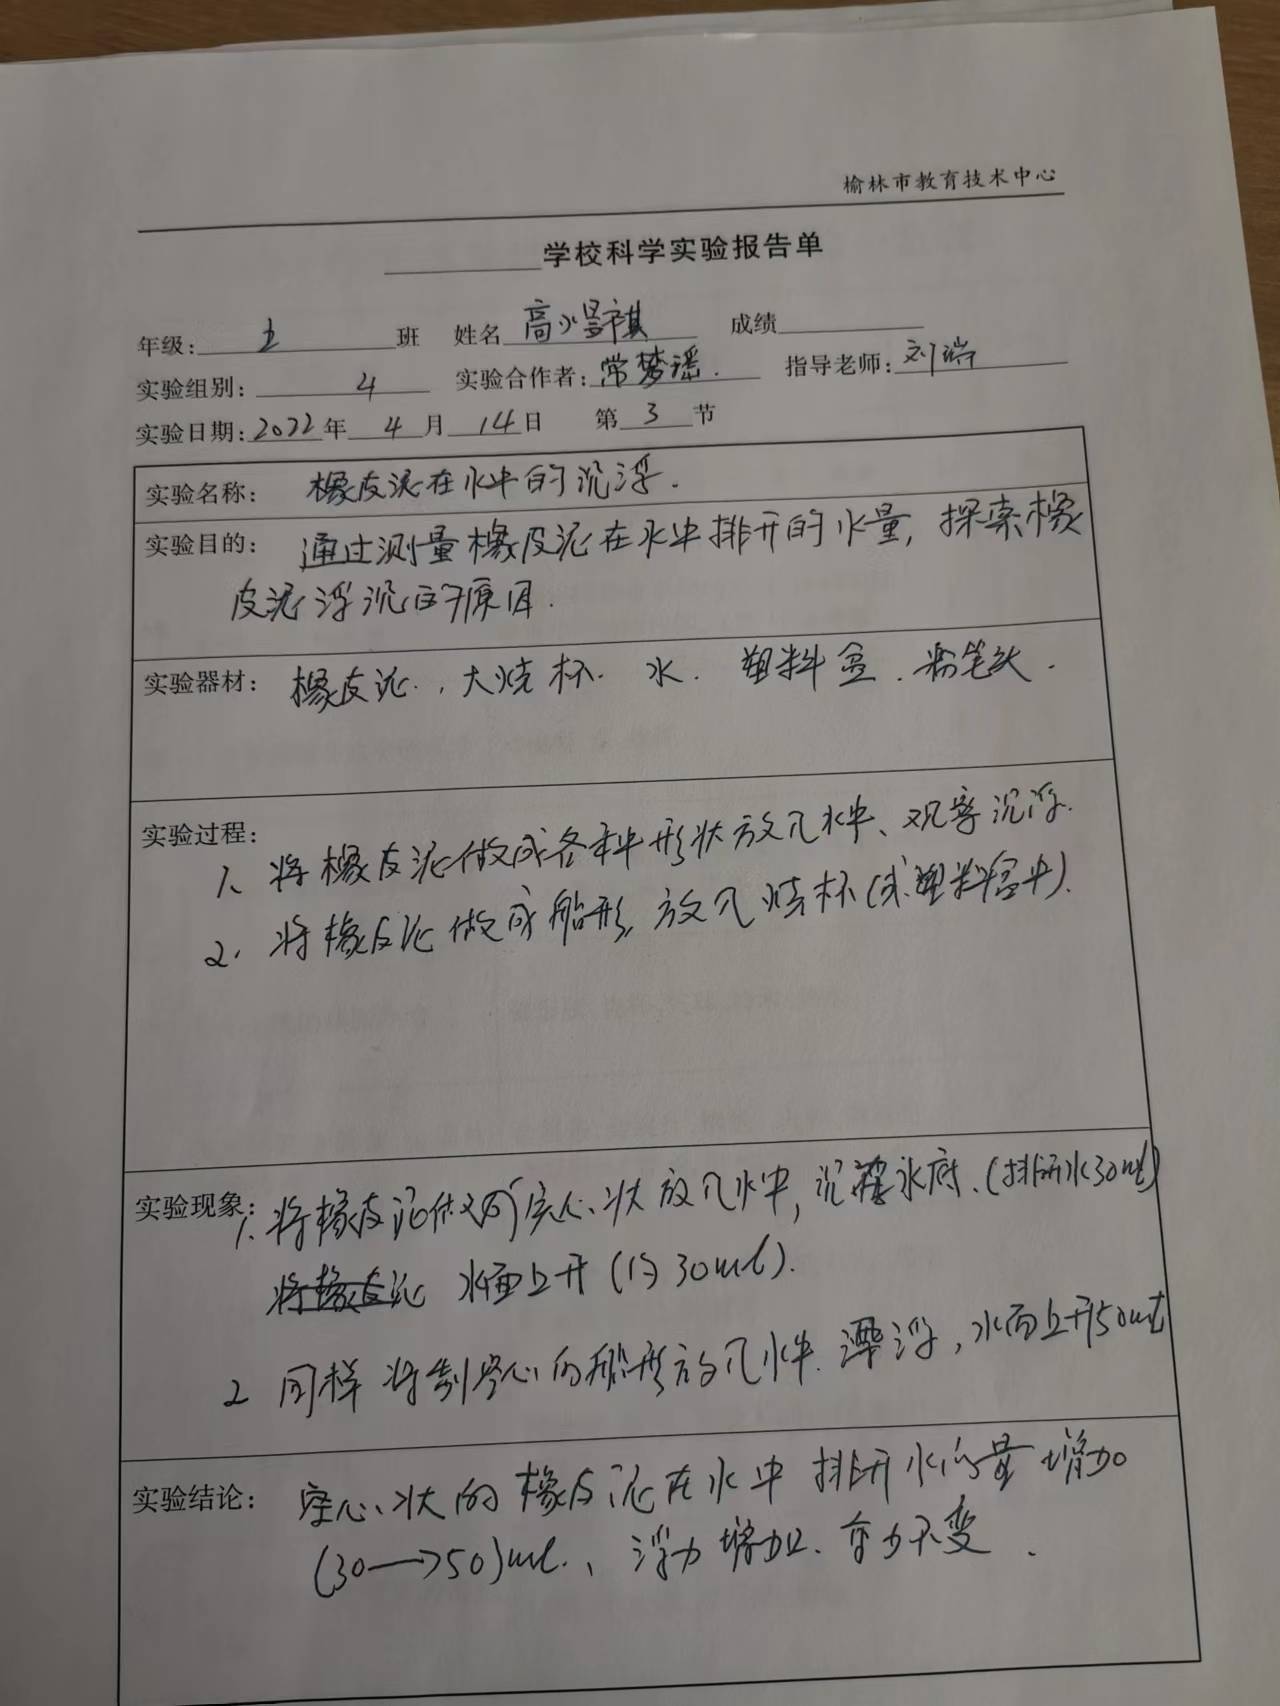 榆林市教育技术中心
学校科学实验报告单
年级: 五 班 姓名 高 祺 成绩
实验组别: 4 实验合作者: 常梦瑶. 指导老师: 刘
实验日期: 2022年 4 月 14日 第 3 节
实验名称: 橡皮泥在水中的沉浮.
实验目的: 通过测量橡皮泥在水中排开的水量, 探索橡
皮泥浮沉的原因.
实验器材: 橡皮泥., 大烧杯. 水. 塑料盒. 粉笔头.
实验过程:
1、将橡皮泥做成各种形状放入水中、观察沉浮.
2. 将橡皮泥做成船形, 放入烧杯(或塑料盒中).
实验现象:
1. 将橡皮泥做 实心状放入水中, 沉 水底.(排开水30ml)
水面上升(约30ml).
2 同样将制空心的船形放入水中. 漂浮, 水面上升50ml
实验结论: 空心状的橡皮泥在水中排开水的量增加
(30→50)ml.、浮力增加. 重力不变.